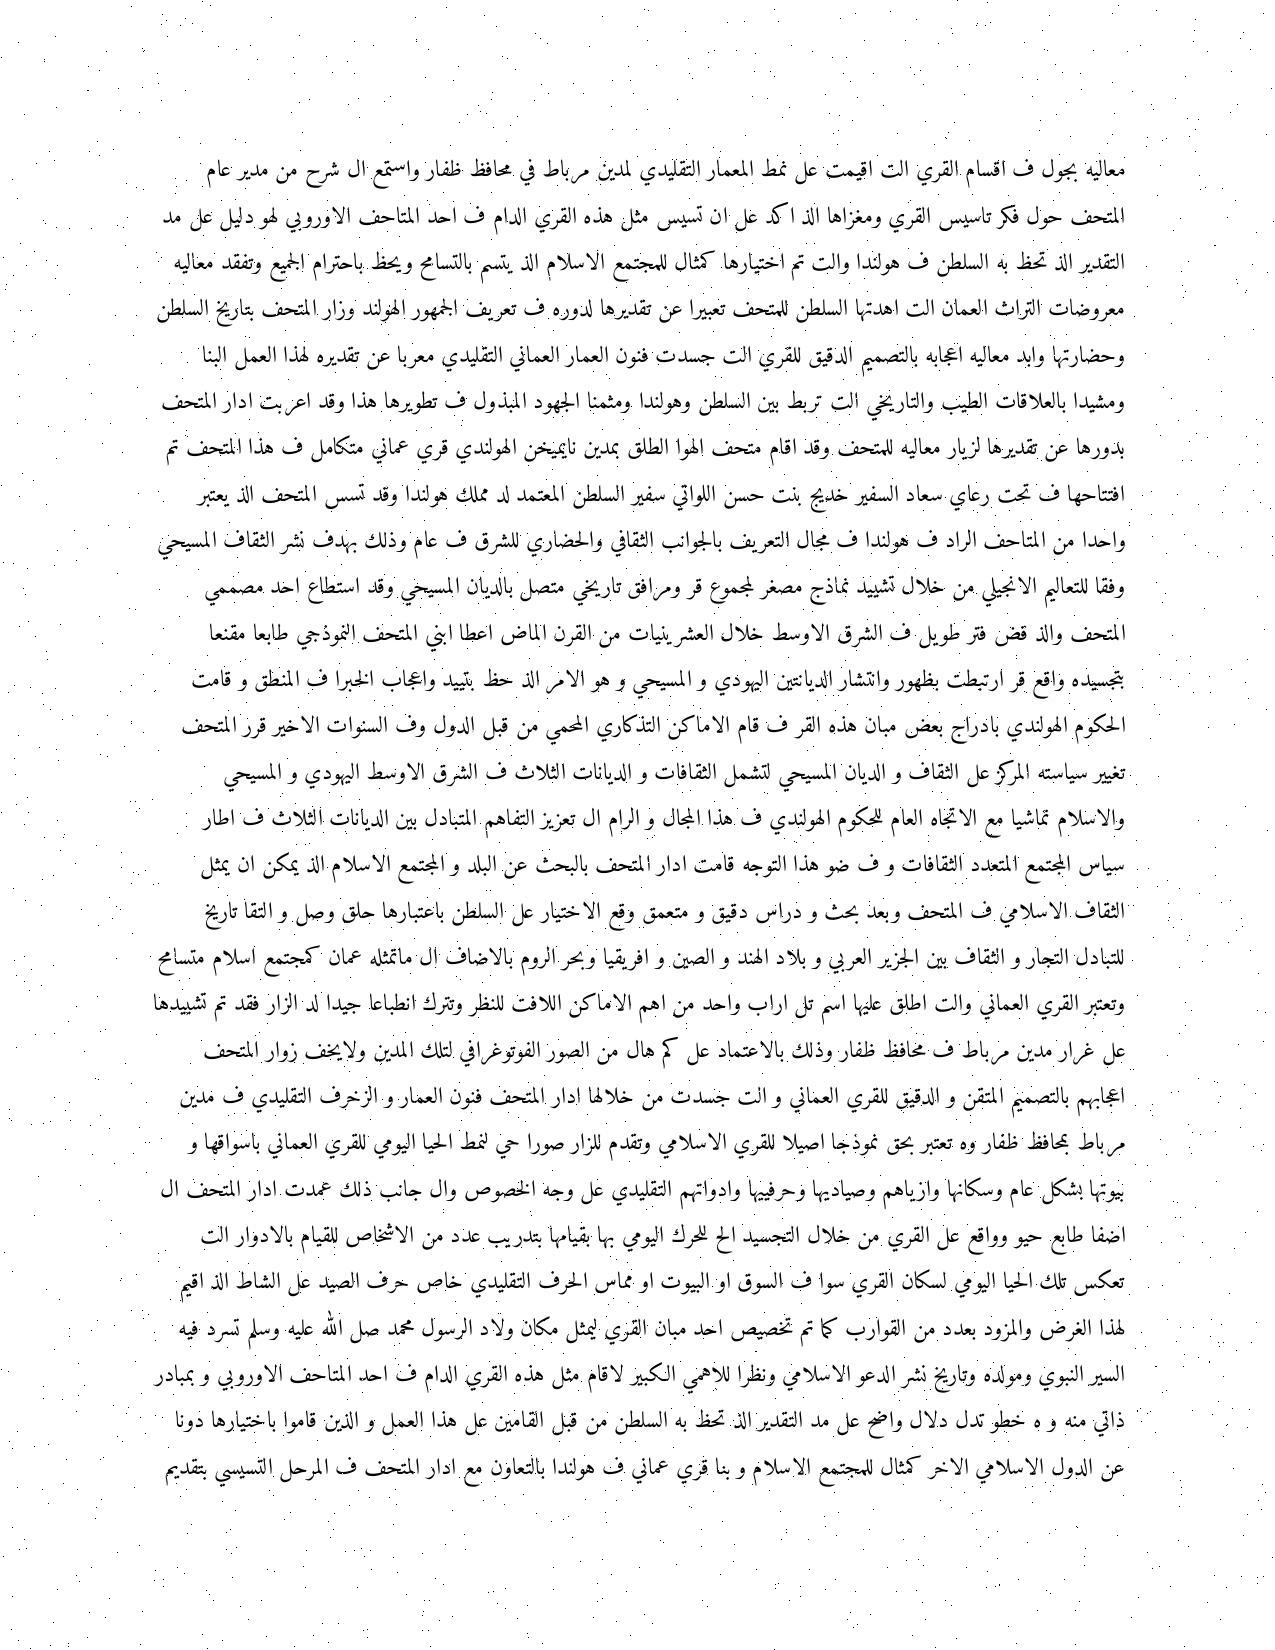 معاليه بجول ف اقسام القري الت اقيمت عل نمط المعمار التقليدي لمدين مرباط في محافظ ظفار واستمع ال شرح من مدير عام
المتحف حول فكر تاسيس القري ومغزاها الذ اكد عل ان تسيس مثل هذه القري الدام ف احد المتاحف الاوروبي لهو دليل عل مد
التقدير الذ تحظ به السلطن ف هولندا والت تم اختيارها كمثال للمجتمع الاسلام الذ يتسم بالتسامح ويحظ باحترام الجميع وتفقد معاليه
معروضات التراث العمان الت اهدتها السلطن للمتحف تعبيرا عن تقديرها لدوره ف تعريف الجمهور الهولند وزار المتحف بتاريخ السلطن
وحضارتها وابد معاليه اعجابه بالتصميم الدقيق للقري الت جسدت فنون العمار العماني التقليدي معربا عن تقديره لهذا العمل البنا
ومشيدا بالعلاقات الطيب والتاريخي الت تربط بين السلطن وهولندا ومثمنا الجهود المبذول ف تطويرها هذا وقد اعربت ادار المتحف
بدورها عن تقديرها لزيار معاليه للمتحف وقد اقام متحف الهوا الطلق بمدين نايميخن الهولندي قري عماني متكامل ف هذا المتحف تم
افتتاحها ف تحت رعاي سعاد السفير خديج بنت حسن اللواتي سفير السلطن المعتمد لد مملك هولندا وقد تسس المتحف الذ يعتبر
واحدا من المتاحف الراد ف هولندا ف مجال التعريف بالجوانب الثقافي والحضاري للشرق ف عام وذلك بهدف نشر الثقاف المسيحي
وفقا للتعاليم الانجيلي من خلال تشييد نماذج مصغر لمجموع قر ومرافق تاريخي متصل بالديان المسيحي وقد استطاع احد مصممي
المتحف والذ قض فتر طويل ف الشرق الاوسط خلال العشرينيات من القرن الماض اعطا ابني المتحف النموذجي طابعا مقنعا
بتجسيده واقع قر ارتبطت بظهور وانتشار الديانتين اليهودي و المسيحي و هو الامر الذ حظ بتييد واعجاب الخبرا ف المنطق و قامت
الحكوم الهولندي بادراج بعض مبان هذه القر ف قام الاماكن التذكاري المحمي من قبل الدول وف السنوات الاخير قرر المتحف
تغيير سياسته المركز عل الثقاف و الديان المسيحي لتشمل الثقافات و الديانات الثلاث ف الشرق الاوسط اليهودي و المسيحي
والاسلام تماشيا مع الاتجاه العام للحكوم الهولندي ف هذا المجال و الرام ال تعزيز التفاهم المتبادل بين الديانات الثلاث ف اطار
سياس المجتمع المتعدد الثقافات و ف ضو هذا التوجه قامت ادار المتحف بالبحث عن البلد و المجتمع الاسلام الذ يمكن ان يمثل
الثقاف الاسلامي ف المتحف وبعد بحث و دراس دقيق و متعمق وقع الاختيار عل السلطن باعتبارها حلق وصل و التقا تاريخ
للتبادل التجار و الثقاف بين الجزير العربي و بلاد الهند و الصين و افريقيا وبحر الروم بالاضاف ال ماتمثله عمان كمجتمع اسلام متسامح
وتعتبر القري العماني والت اطلق عليها اسم تل اراب واحد من اهم الاماكن اللافت للنظر وتترك انطباعا جيدا لد الزار فقد تم تشييدها
عل غرار مدين مرباط ف محافظ ظفار وذلك بالاعتماد عل كم هال من الصور الفوتوغرافي لتلك المدين ولايخف زوار المتحف
اعجابهم بالتصميم المتقن و الدقيق للقري العماني و الت جسدت من خلالها ادار المتحف فنون العمار و الزخرف التقليدي ف مدين
مرباط بمحافظ ظفار وه تعتبر بحق نموذجا اصيلا للقري الاسلامي وتقدم للزار صورا حي لنمط الحيا اليومي للقري العماني باسواقها و
بيوتها بشكل عام وسكانها وازياهم وصياديها وحرفييها وادواتهم التقليدي عل وجه الخصوص وال جانب ذلك عمدت ادار المتحف ال
اضفا طابع حيو وواقع عل القري من خلال التجسيد الح للحرك اليومي بها بقيامها بتدريب عدد من الاشخاص للقيام بالادوار الت
تعكس تلك الحيا اليومي لسكان القري سوا ف السوق او البيوت او مماس الحرف التقليدي خاص حرف الصيد عل الشاط الذ اقيم
لهذا الغرض والمزود بعدد من القوارب كما تم تخصيص احد مبان القري ليمثل مكان ولاد الرسول محمد صل الله عليه وسلم تسرد فيه
السير النبوي ومولده وتاريخ نشر الدعو الاسلامي ونظرا للاهمي الكبير لاقام مثل هذه القري الدام ف احد المتاحف الاوروبي و بمبادر
ذاتي منه و ه خطو تدل دلال واضح عل مد التقدير الذ تحظ به السلطن من قبل القامين عل هذا العمل و الذين قاموا باختيارها دونا
عن الدول الاسلامي الاخر كمثال للمجتمع الاسلام و بنا قري عماني ف هولندا بالتعاون مع ادار المتحف ف المرحل التسيسي بتقديم